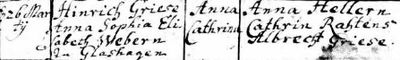 26 Mar Hinrich Griese Anna Anna Hellern
tij Anna Sophia Eli Cathrina Cathrin Rahtens
sabeth Webern Albrecht Griese.
zu Glashagen